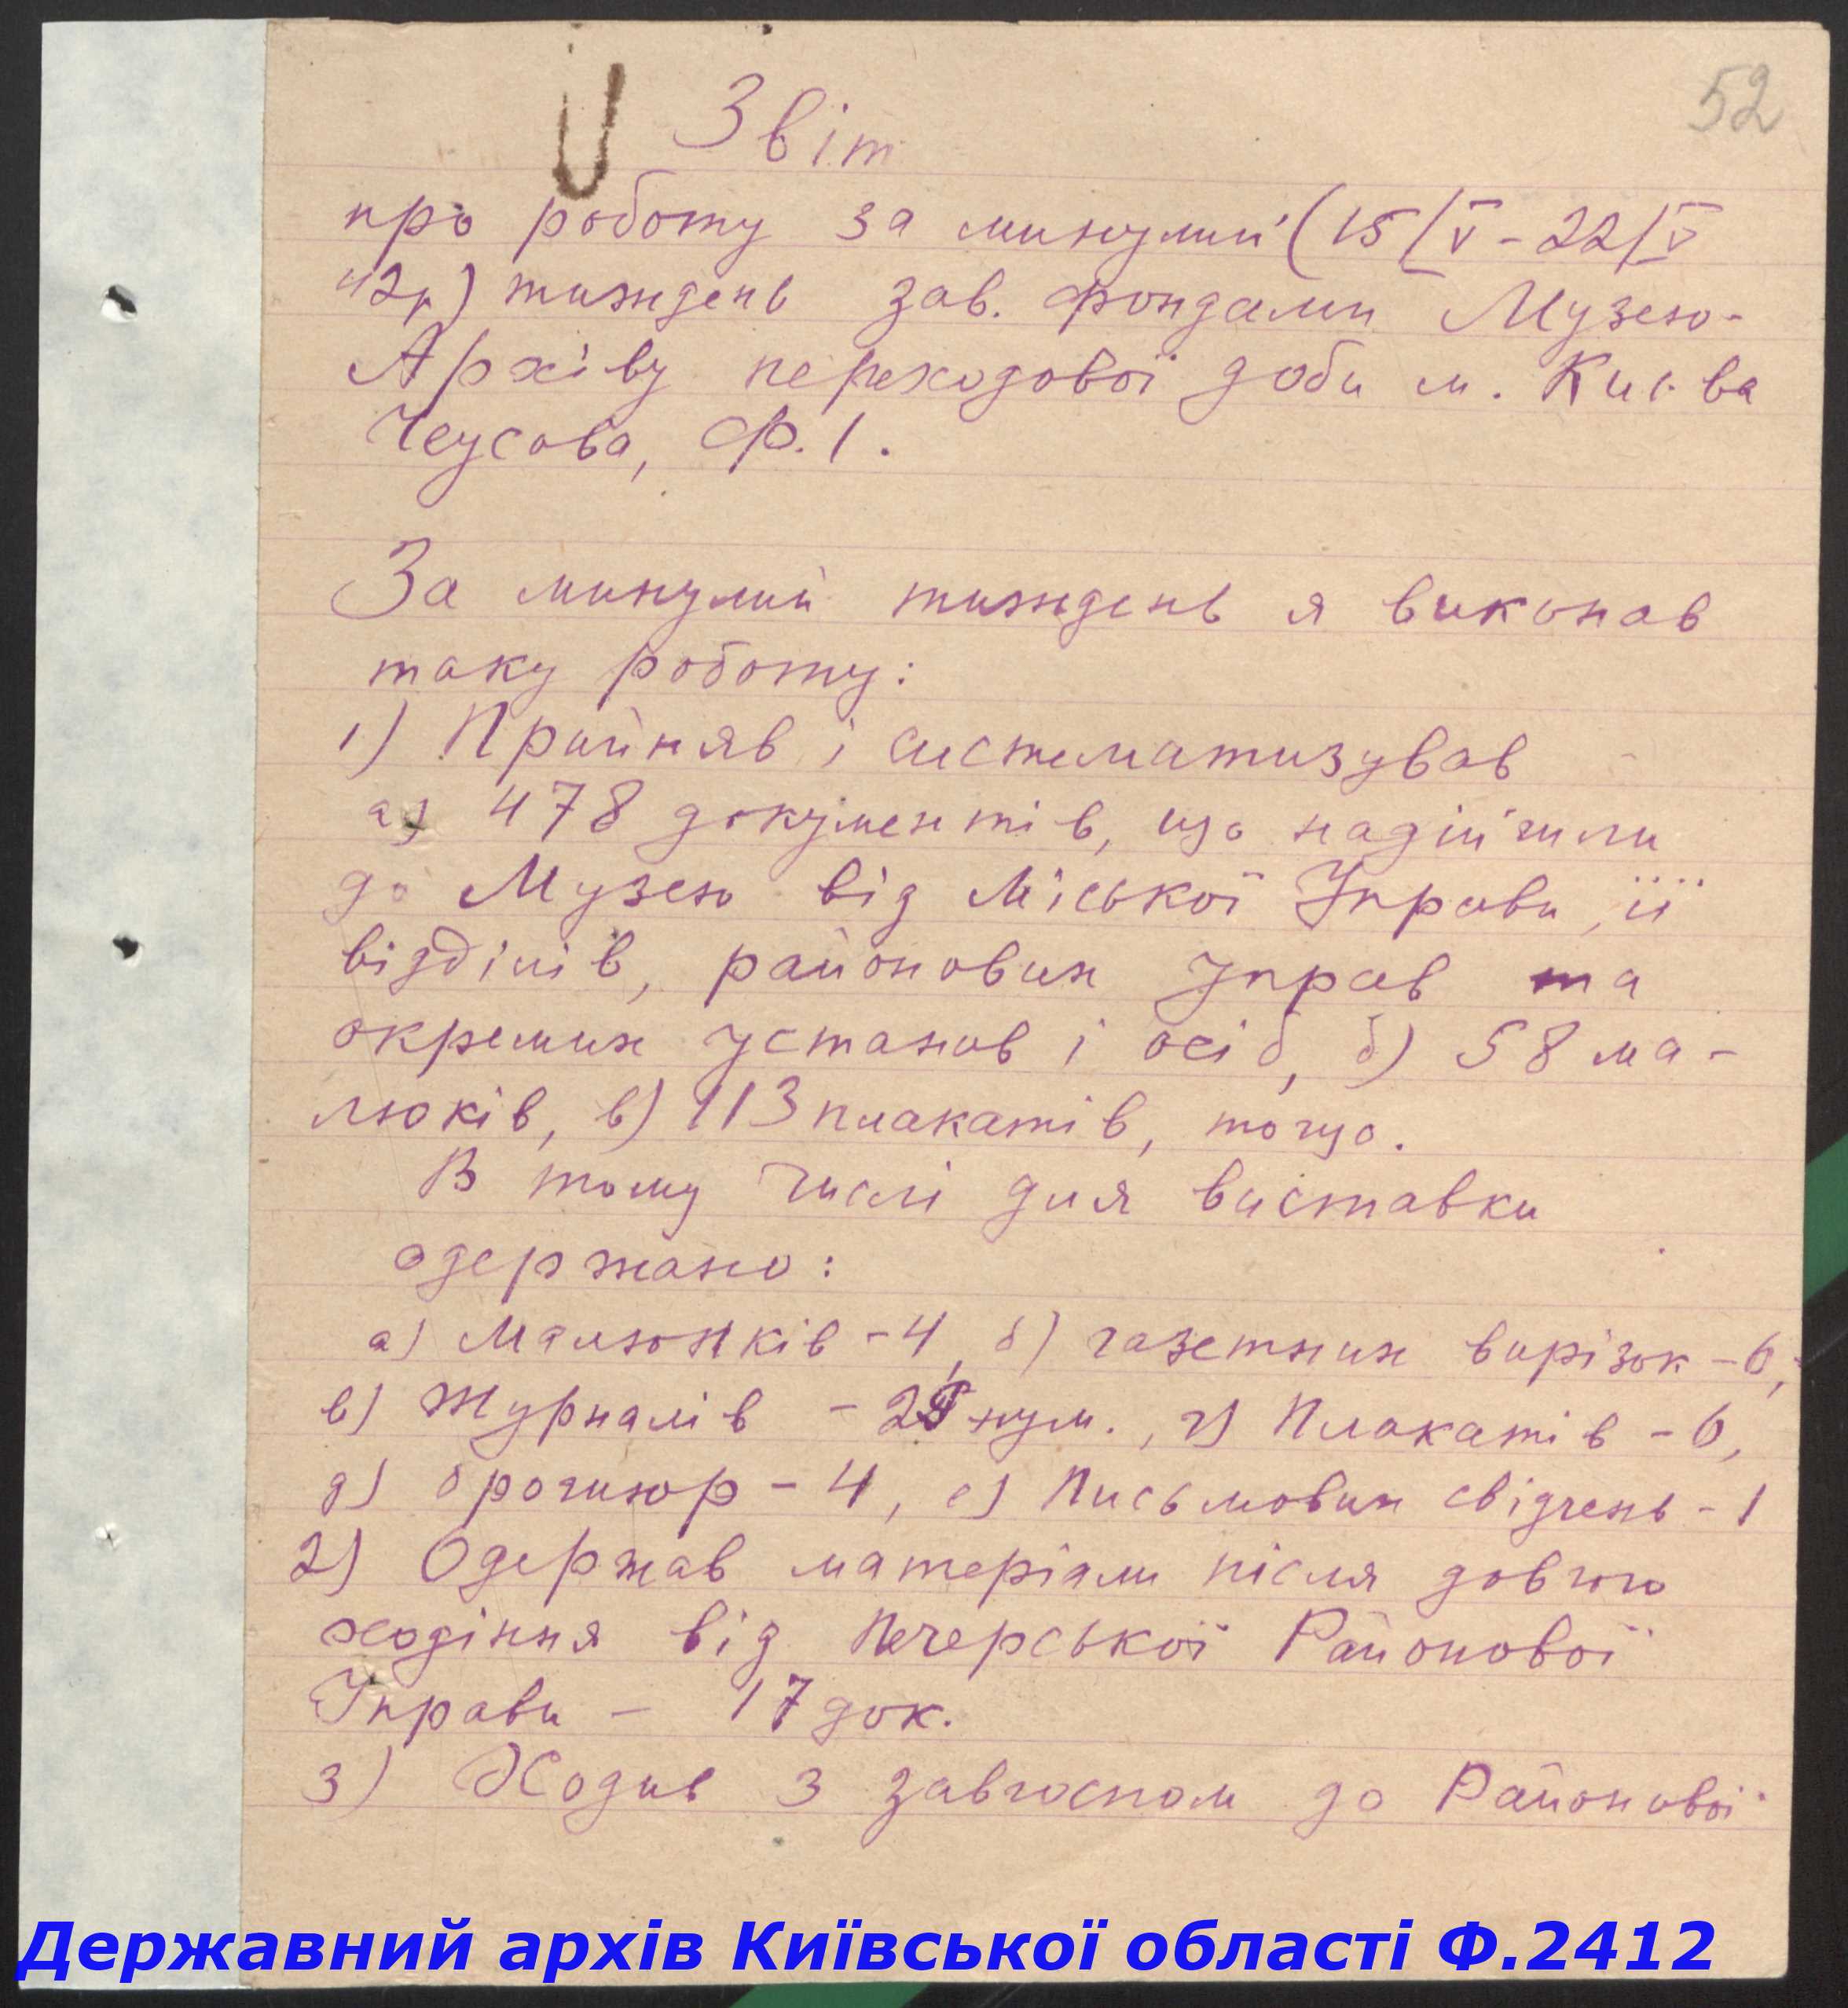 52
Звіт
про роботу за минулий (15/V - 22/V
42р) тиждень зав. фондами Музею-
Архіву переходової доби м. Києва
Чеусова, Ф. І.
За минулий тиждень я виконав
таку роботу:
1) Прийняв і систематизував
а) 478 документів, що надійшли
до Музею від Міської Управи, її
відділів, районових Управ та
окремих установ і осіб, б) 58 ма-
люків, в) 113 плакатів, тощо.
В тому числі для виставки
одержано:
а) Малюнків - 4, б) газетних вирізок - 6,
в) Журналів - нум., г) Плакатів - 6,
д) брошюр - 4, е) Письмових свідчень - 1
2) Одержав матеріали після довгого
ходіння від Печерської Районової
Управи - 17 док.
3) Ходив з завгоспом до Районової
Державний архів Київської області Ф.2412